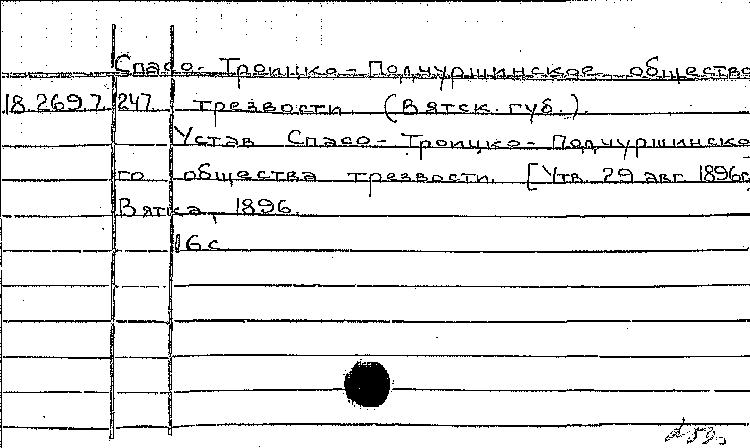 Спасо-Троицко-Подчуршинское общество
18.269.7.247 трезвости (Вятск. губ.).
Устав Спасо-Троицко-Подчуршинско
го общества трезвости. [Утв. 29 авг. 1896г
Вятка, 1896.
16 с